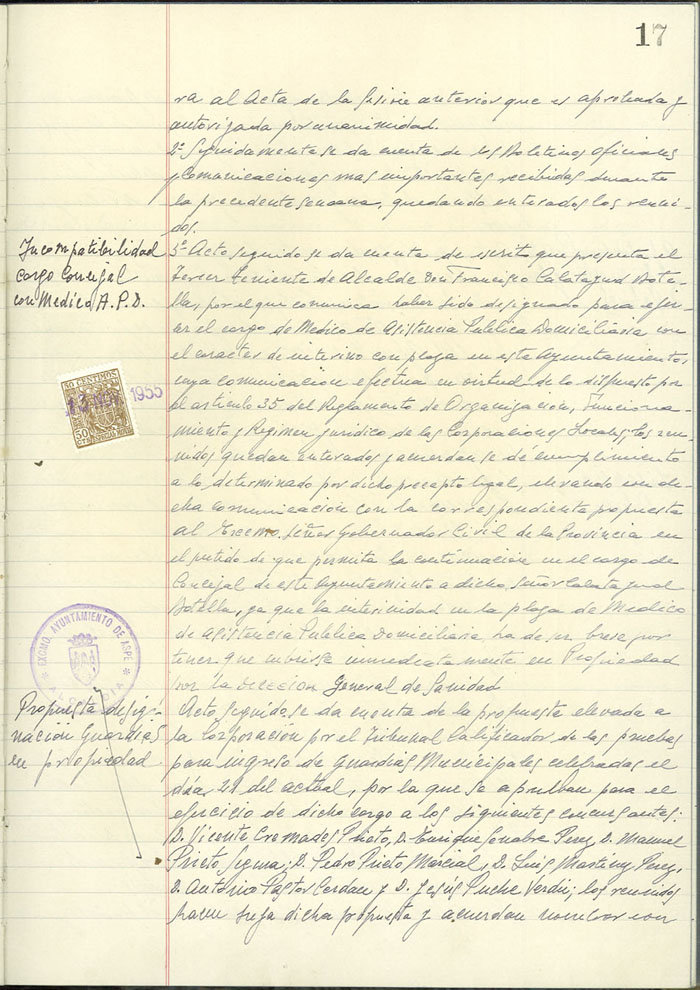 17
ra al Acta de la Sesion anterior que es aprobada y
autorizada por unanimidad.
2º Seguidamente se da cuenta de los Boletines Oficiales
y Comunicaciones mas importantes recibidas durante
la precedente semana, quedando enterados los reuni-
dos.
Incompatibilidad
cargo Concejal
con Medico A.P.D.
Acto seguido se da cuenta de escrito que presenta el
Tercer Teniente de Alcalde Don Francisco Calatayud Bote-
lla, por el que comunica haber sido designado para ejer-
cer el cargo de Medico de Asistencia Publica Domiciliaria con
el caracter de interino con plaza en este Ayuntamiento,
cuya comunicacion efectua en virtud de lo dispuesto por
el articulo 35 del Reglamento de Organizacion, Funciona-
miento y Regimen juridico de las Corporaciones Locales; los reu-
nidos quedan enterados y acuerdan se de cumplimiento
a lo determinado por dicho precepto legal, elevando con di-
cha comunicación con la correspondiente propuesta
al Excmo. Señor Gobernador Civil de la Provincia en
el sentido de que permita la continuación en el cargo de
Concejal de este Ayuntamiento a dicho Señor Calatayud
Botella, ya que la interinidad en la plaza de Medico
de Asistencia Publica Domiciliaria, ha de ser breve por
tener que cubrirse inmediatamente en Propiedad
por la Direccion General de Sanidad
50 CENTIMOS
NOV. 1955
50
EXCMO. AYUNTAMIENTO DE ASPE
ALCALDIA
Propuesta desig-
nación Guardias
en propiedad
Acto seguido, se da cuenta de la propuesta elevada a
la Corporacion por el Tribunal Calificador de las pruebas
para ingreso de Guardias Municipales celebradas el
día, 21 del actual, por la que se aprueban para el
ejercicio de dicho cargo a los siguientes concursantes:
D. Vicente Cremades Prieto, D. Enrique Gonabre Perez, D. Manuel
Prieto Segura; D. Pedro Prieto Marcial, D. Luis Martinez Perez,
D. Antonio Pastor Cerdan y D. Jesús Puche Verdú; los reunidos
hacen suya dicha propuesta y acuerdan nombrar con